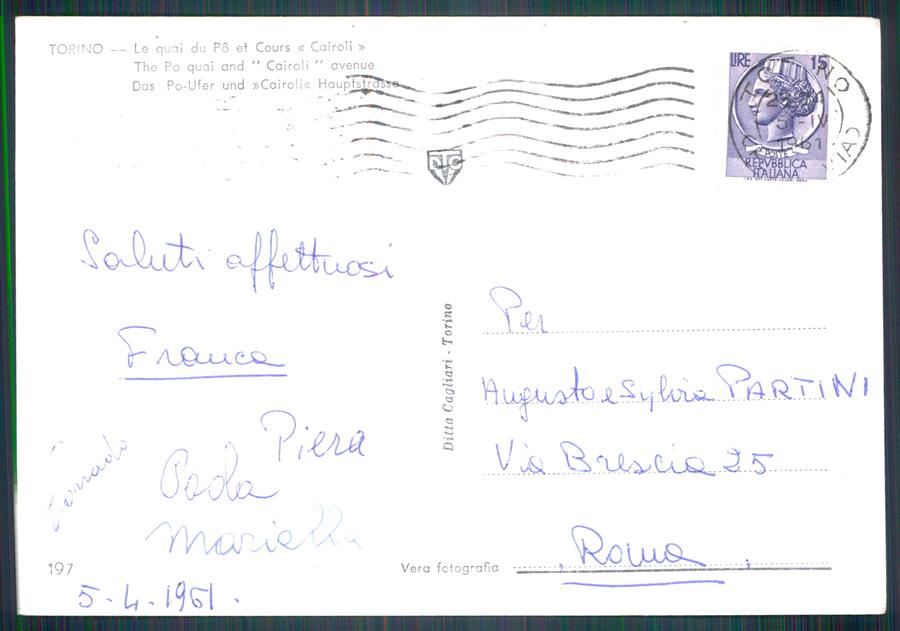 TORINO — Le quai du Pô et Cours « Cairoli »
The Po quai and " Cairoli " avenue
Das Po-Ufer und »Cairoli« Hauptstrasse
LIRE 15
POSTE
REPVBBLICA
ITALIANA
TORINO
5-IV
1961
Saluti affettuosi
Franca
Piera
Corrado
Paola
Mariella
197
5-4-1961.
Ditta Cagliari - Torino
Per
Augusto e Sylvia PARTINI
Via Brescia 25
Roma
Vera fotografia